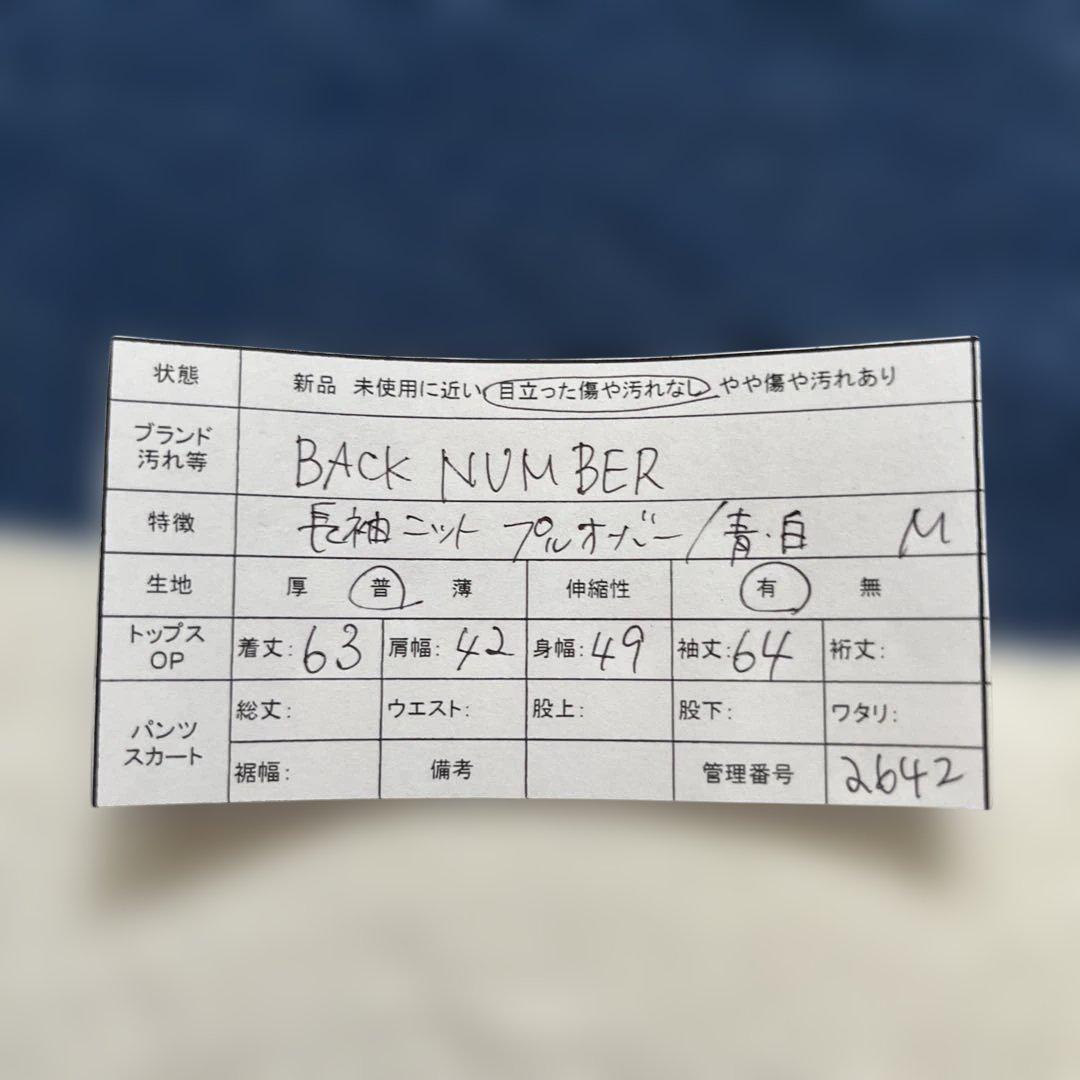 状態 新品 未使用に近い 目立った傷や汚れなし やや傷や汚れあり
ブランド
汚れ等
BACK NUMBER
特徴 長袖ニット プルオーバー/青・白 M
生地 厚 普 薄 伸縮性 有 無
トップス
OP
着丈:63 肩幅:42 身幅:49 袖丈:64 裄丈:
パンツ
スカート
総丈: ウエスト: 股上: 股下: ワタリ:
裾幅: 備考 管理番号 2642